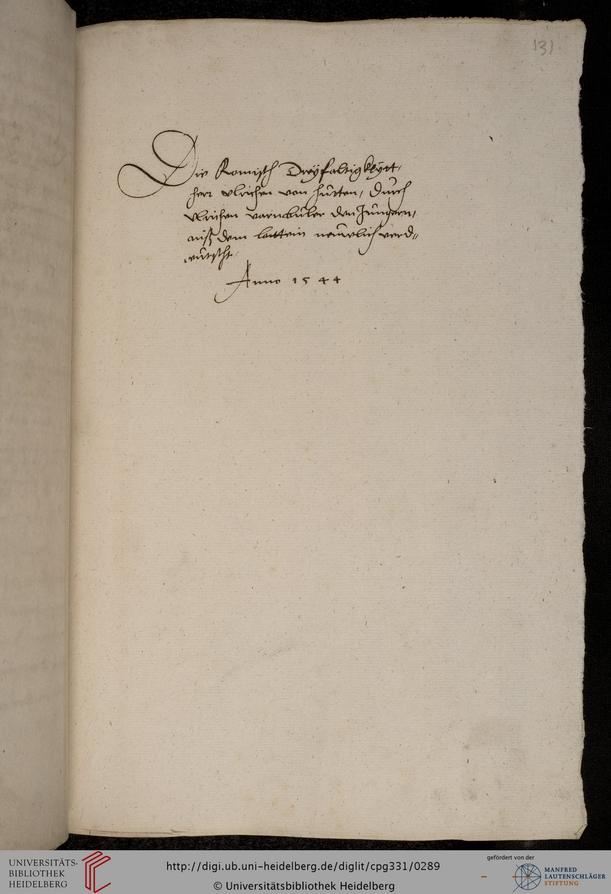 131.
Die Romisch Dreÿfaltigkeÿtt,
herr vlrichen von hutten, durch
vlrichen varnbuler den Jungern,
auß dem lattein neuwlich verd=
eutscht.
Anno 1544
UNIVERSITÄTS-
BIBLIOTHEK
HEIDELBERG
http://digi.ub.uni-heidelberg.de/diglit/cpg331/0289
© Universitätsbibliothek Heidelberg
gefördert von der
MANFRED
LAUTENSCHLÄGER
STIFTUNG